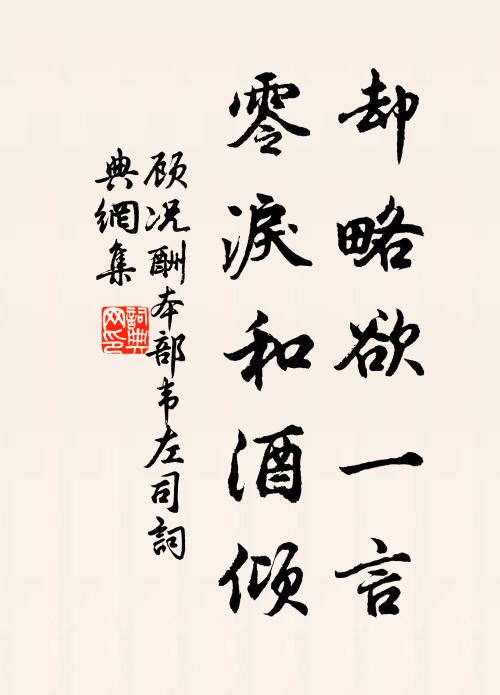 却略欲一言
零淚和酒傾
顾况酬本部韦左司詞
典網集
詞典
网印